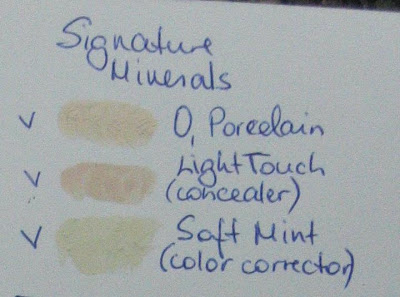 Signature
Minerals
✓ O, Porcelain
✓ Light Touch
(concealer)
✓ Soft Mint
(color corrector)